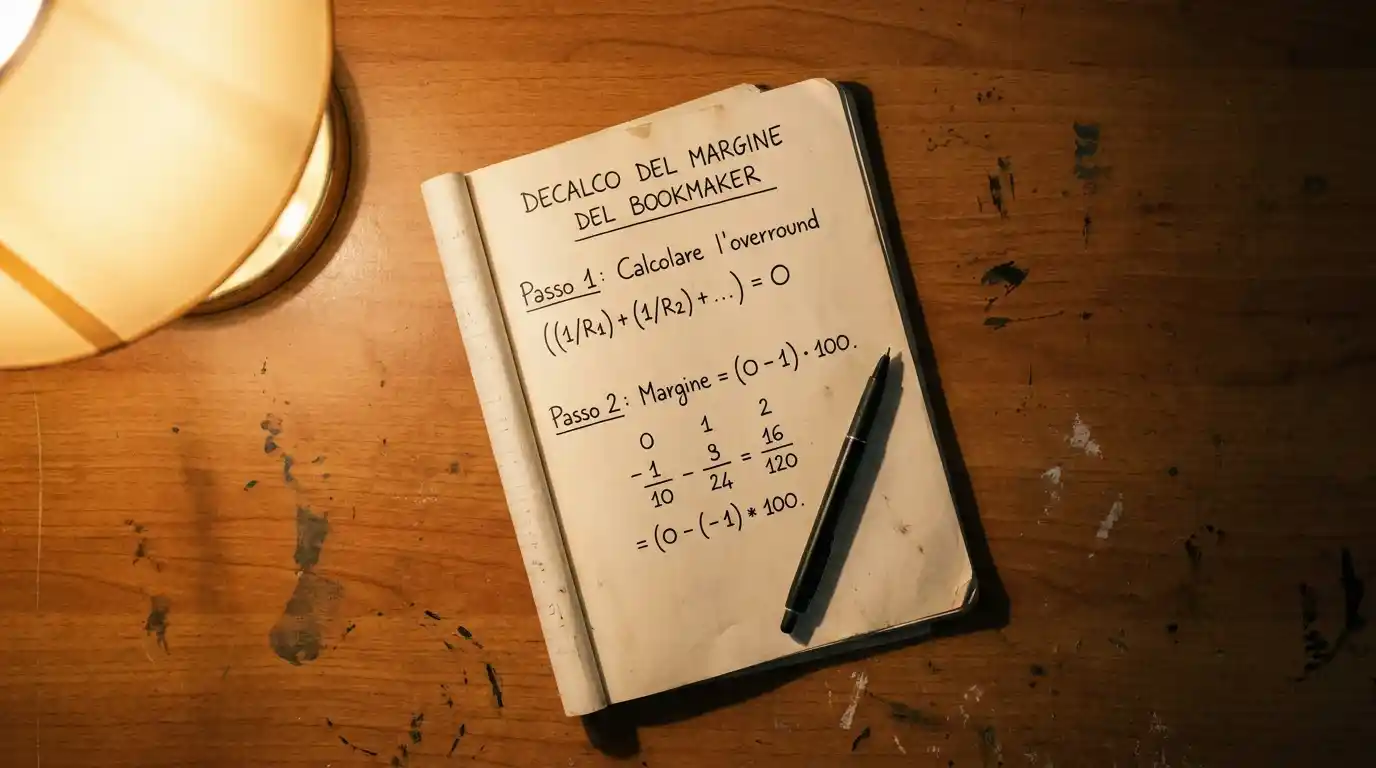 DECALCO DEL MARGINE
DEL BOOKMAKER
Passo 1: Calcolare l'overround
((1/R1) + (1/R2) + ...) = O
Passo 2: Margine = (O - 1) · 100.
0 1 2
- 1/10 - 3/24 = 16/120
= (0 - (-1) * 100.